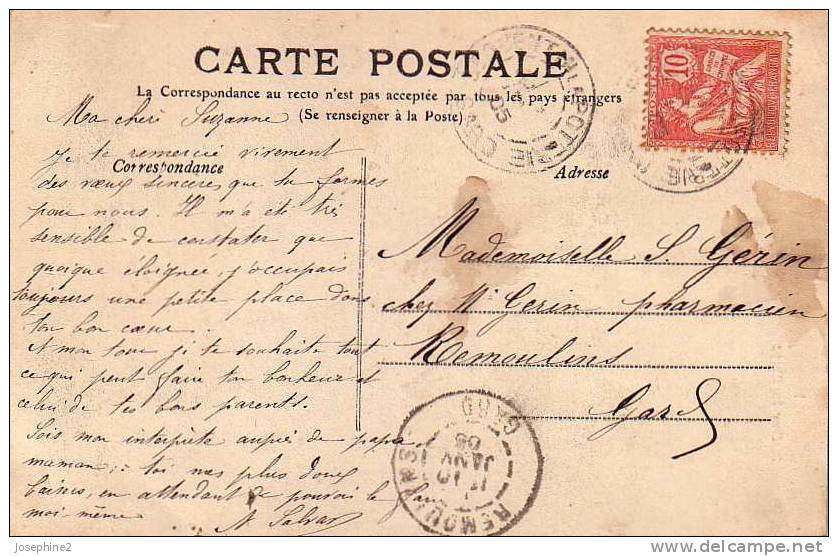 CARTE POSTALE
La Correspondance au recto n'est pas acceptée par tous les pays étrangers
(Se renseigner à la Poste)
Correspondance
Adresse
Ma chère Suzanne
Je te remercie vivement
des vœux sincères que tu formes
pour nous. Il m'a été très
sensible de constater que
quoique éloignée, j'occupais
toujours une petite place dans
ton bon cœur.
A mon tour je te souhaite tout
ce qui peut faire ton bonheur et
celui de tes bons parents.
Sois mon interprète auprès de papa
maman, à toi nos plus doux
baisers, en attendant de pouvoir le faire
moi-même
Mademoiselle S. Gérin
chez Mr Gerin pharmacien
Remoulins
Gard
POSTES
10
REMOULINS
GARD
10
JANV
05
josephine2
www.delcampe.net